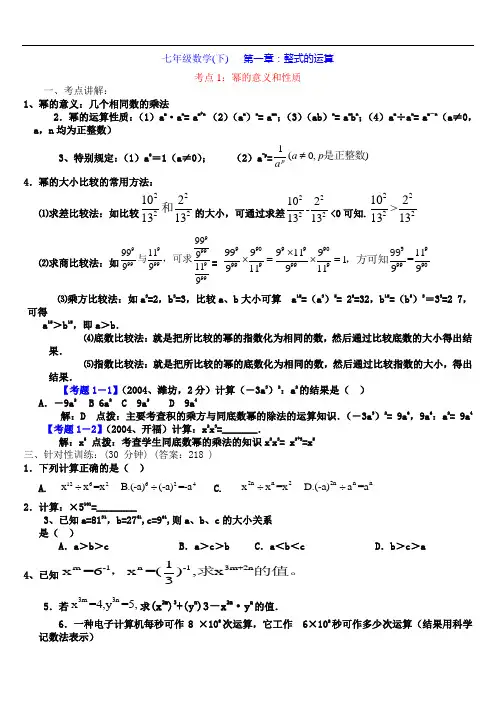 七年级数学(下)　第一章：整式的运算
考点1：幂的意义和性质
一、考点讲解：
1、幂的意义：几个相同数的乘法
2．幂的运算性质：（1）aᵐ·aⁿ= aᵐ⁺ⁿ （2）（aᵐ）ⁿ= aᵐⁿ；（3）（ab）ⁿ= aⁿbⁿ；（4）aᵐ÷aⁿ= aᵐ⁻ⁿ（a≠0，
a，n均为正整数）
3、特别规定：（1）a⁰＝1（a≠0）；　（2）a⁻ᵖ= 1/aᵖ (a≠0, p是正整数)
4．幂的大小比较的常用方法：
⑴求差比较法：如比较 10²/13² 和 2²/13² 的大小，可通过求差 10²/13² - 2²/13² <0可知. 10²/13² > 2²/13²
⑶乘方比较法：如a³=2，b⁵=3，比较a、b大小可算 a¹⁵=（a³）⁵= 2⁵=32，b¹⁵=（b⁵）³＝3³=2 7，
可得
a¹⁵＞b¹⁵，即a＞b．
⑷底数比较法：就是把所比较的幂的指数化为相同的数，然后通过比较底数的大小得出结
果．
⑸指数比较法：就是把所比较的幂的底数化为相同的数，然后通过比较指数的大小，得出
结果．
【考题1－1】（2004、潍坊，2分）计算（－3a³）²：a²的结果是（ ）
A．－9a² B 6a² C 9a² D 9a⁴
解：D 点拨：主要考查积的乘方与同底数幂的除法的运算知识．（－3a³）²= 9a⁶，9a⁶：a²= 9a⁴
【考题1－2】（2004、开福）计算：x²x³=_______．
解：x⁵ 点拨：考查学生同底数幂的乘法的知识x²x³= x²⁺³=x⁵
三、针对性训练：(30 分钟) (答案：218 )
1．下列计算正确的是（ ）
A. x¹²÷x⁶=x² B.(-a)⁶÷(-a)²=-a⁴ C. x²ⁿ÷xⁿ=x² D.(-a)²ⁿ÷aⁿ=aⁿ
3、已知a=81³¹，b=27⁴¹,c=9⁶¹,则a、b、c的大小关系
是（ ）
A．a＞b＞c B．a＞c＞b C．a＜b＜c D．b＞c＞a
4、已知 xᵐ=6⁻¹，xⁿ=(1/3)⁻¹,求x³ᵐ⁺²ⁿ的值。
5．若x³ᵐ=4,y³ⁿ=5,求(x²ᵐ)³+(yⁿ)3－x²ᵐ·yⁿ的值．
6．一种电子计算机每秒可作8 ×10⁸次运算，它工作 6×10⁵秒可作多少次运算（结果用科学
记数法表示）